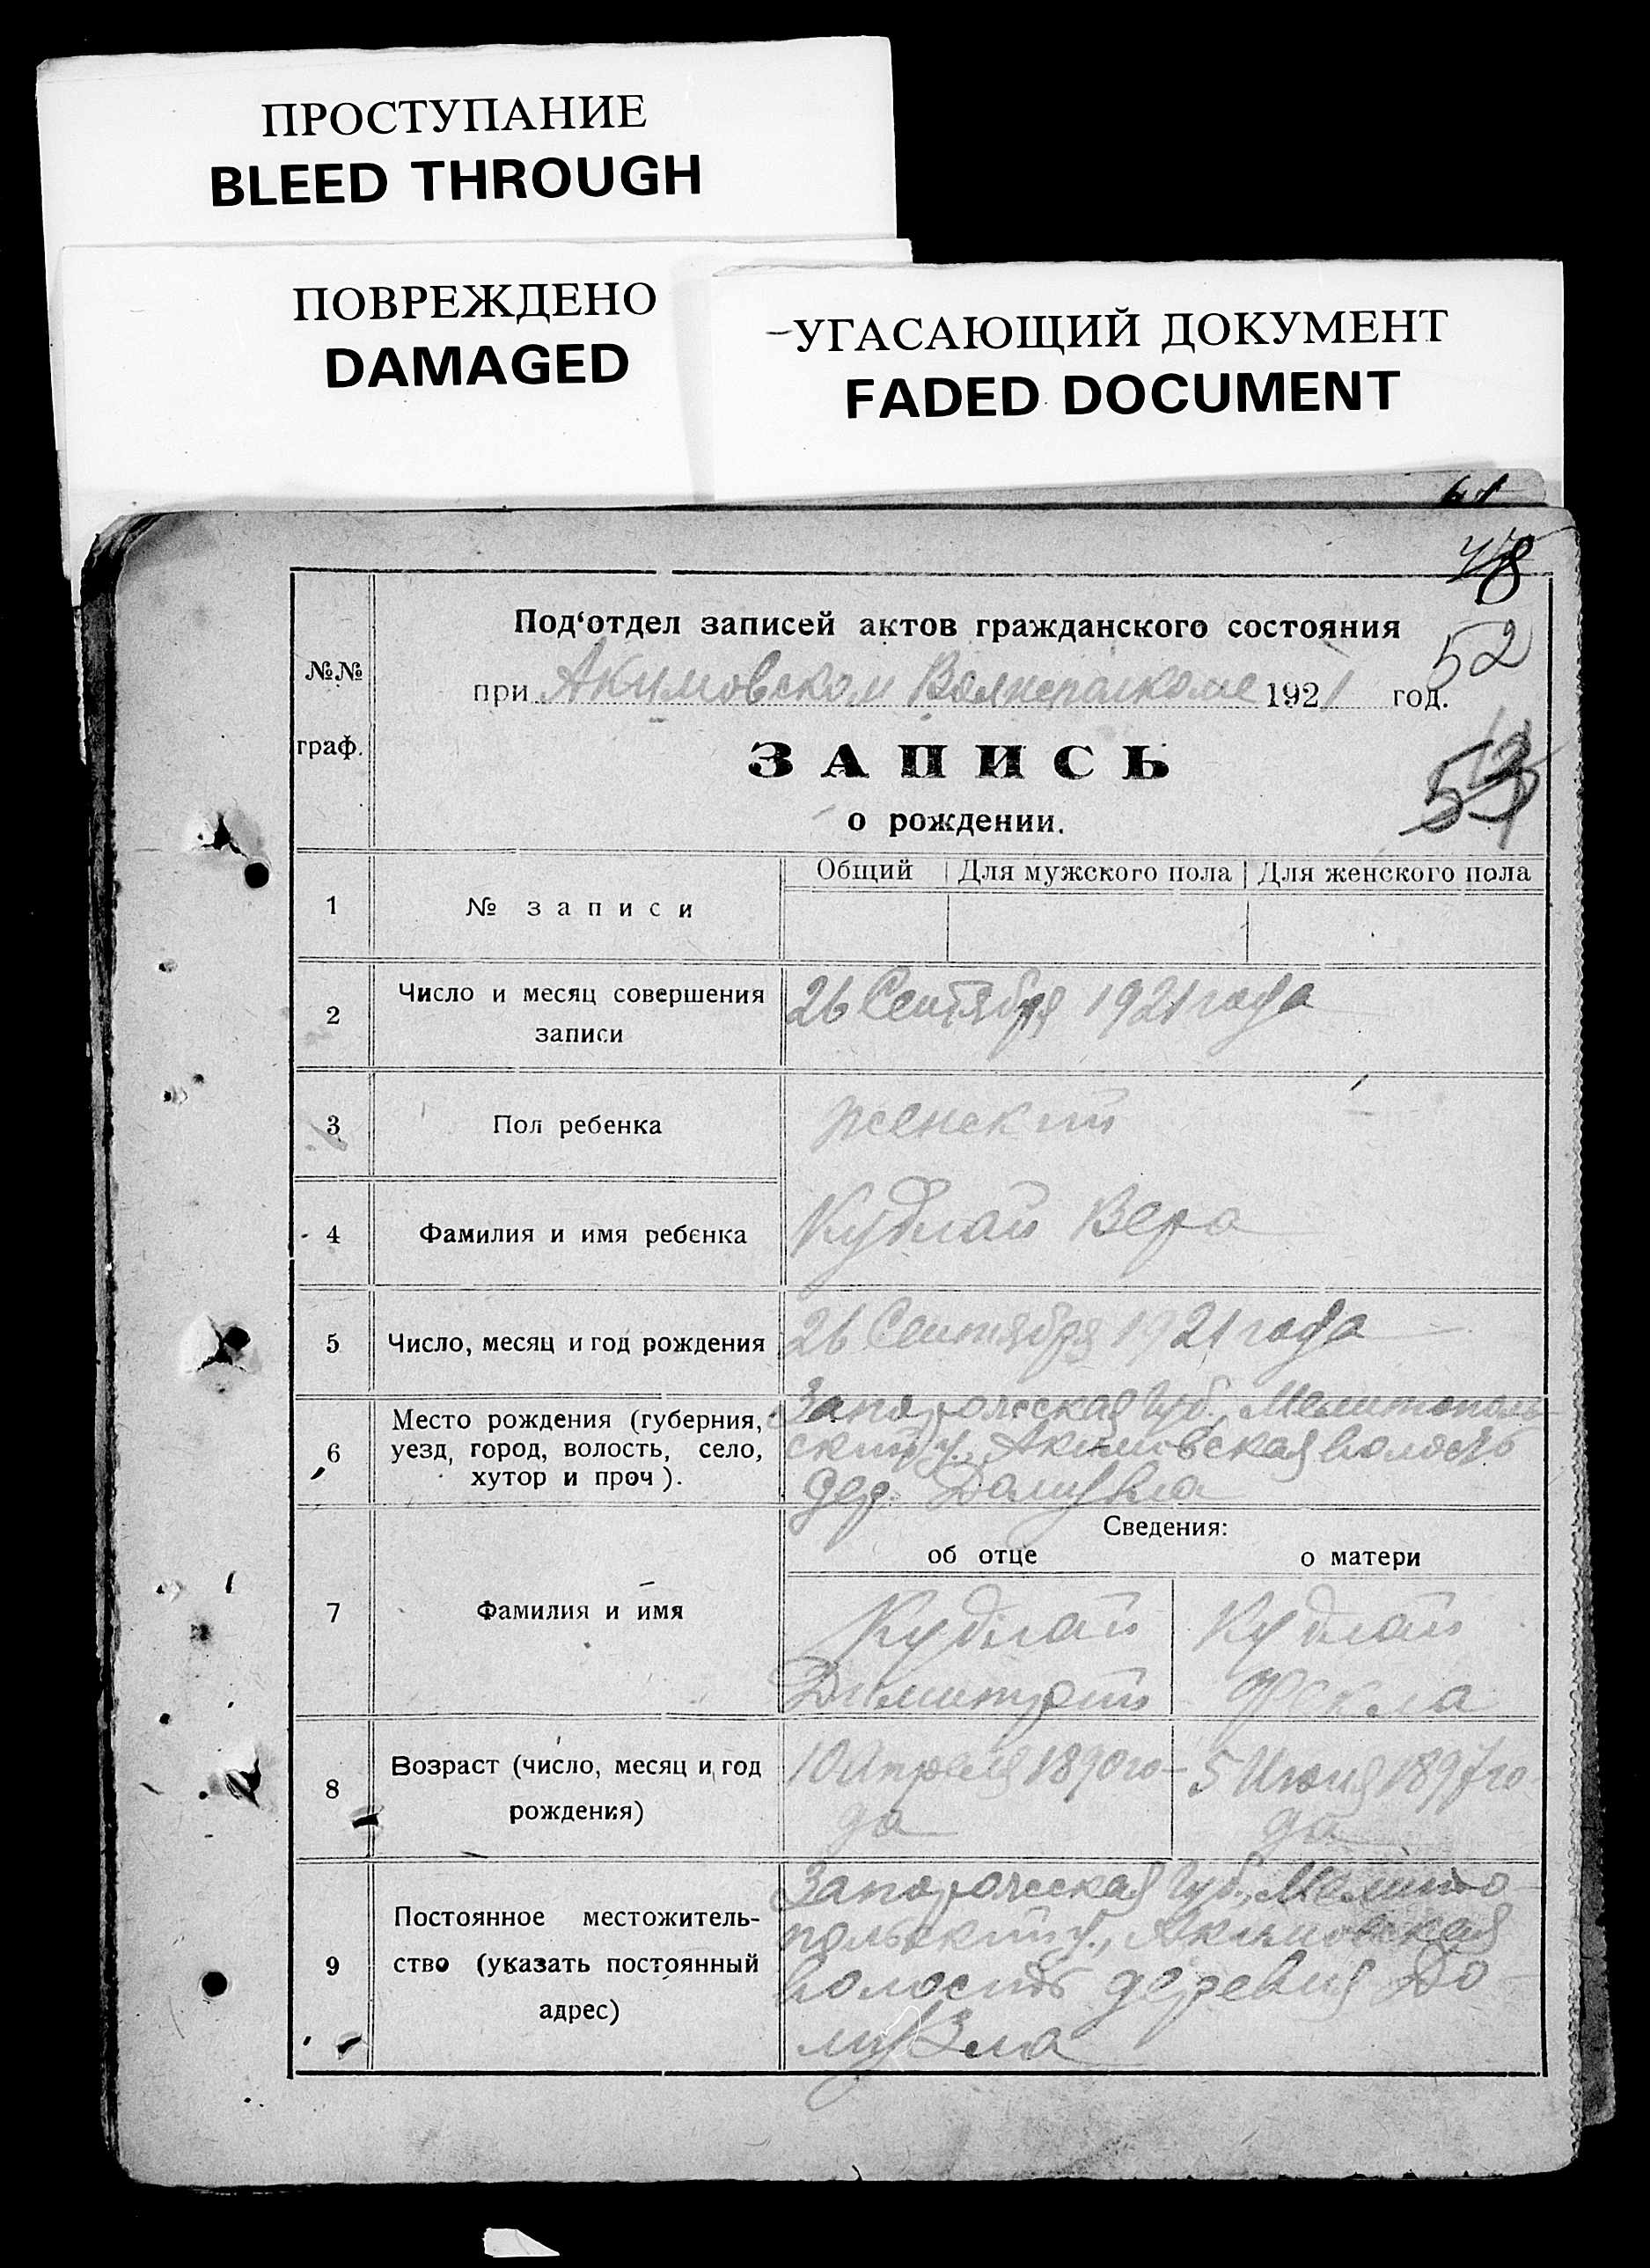 ПРОСТУПАНИЕ
BLEED THROUGH
ПОВРЕЖДЕНО
DAMAGED
УГАСАЮЩИЙ ДОКУМЕНТ
FADED DOCUMENT
48
Под‘отдел записей актов гражданского состояния
52
№№
при Акимовском Волисполкоме 1921 год.
граф.
ЗАПИСЬ
53
о рождении.
Общий Для мужского пола Для женского пола
1 № записи
2 Число и месяц совершения записи
26 Сентября 1921 года
3 Пол ребенка
женский
4 Фамилия и имя ребенка
Кудлай Вера
5 Число, месяц и год рождения
26 Сентября 1921 года
6 Место рождения (губерния,
уезд, город, волость, село,
хутор и проч).
Запорожская Губ., Мелитополь-
ский у., Акимовская волость
дер.
Сведения:
об отце о матери
7 Фамилия и имя
Кудлай Кудлай
Димитрий Фекла
8 Возраст (число, месяц и год
рождения)
10 Апреля 1890 го- 5 Июня 1897 го-
да да
9 Постоянное местожитель-
ство (указать постоянный
адрес)
Запорожская Губ., Мелито-
польский у., Акимовская
волость деревня До-